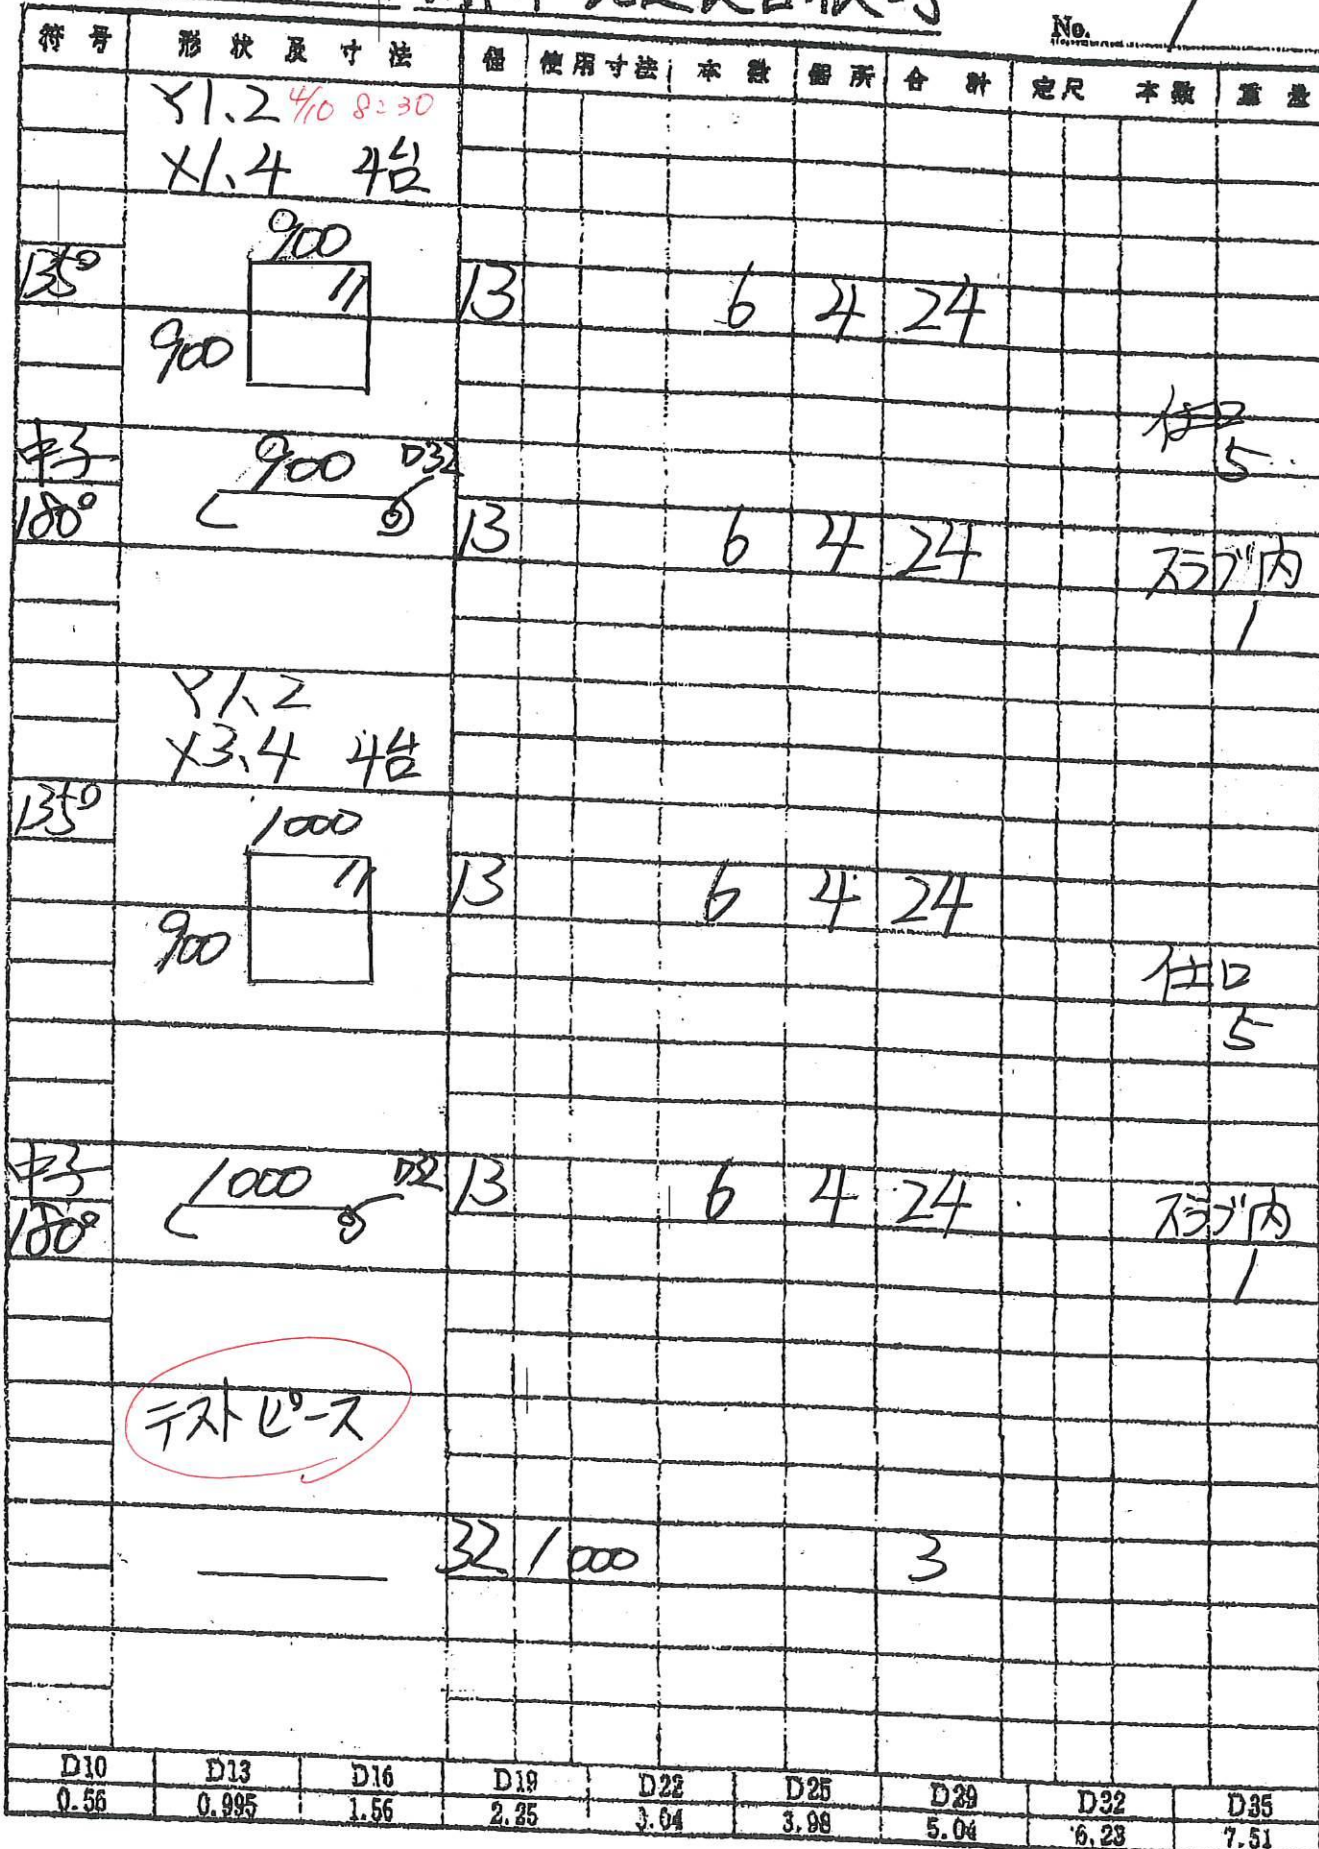 No. 1
符号 形状及寸法 径 使用寸法 本数 個所 合計 定尺 本数 重量
Y1、2 4/10 8:30
X1、4 4台
900
135° 13 6 4 24
900
仕口
5
中子 900 D32
180° 13 6 4 24 スラブ内
1
Y1、2
X3、4 4台
135° 1000
13 6 4 24
900
仕口
5
中子 1000 D32 13 6 4 24 スラブ内
180° 1
テストピース
32 1000 3
D10 D13 D16 D19 D22 D25 D29 D32 D35
0.56 0.995 1.56 2.25 3.04 3.98 5.04 6.23 7.51